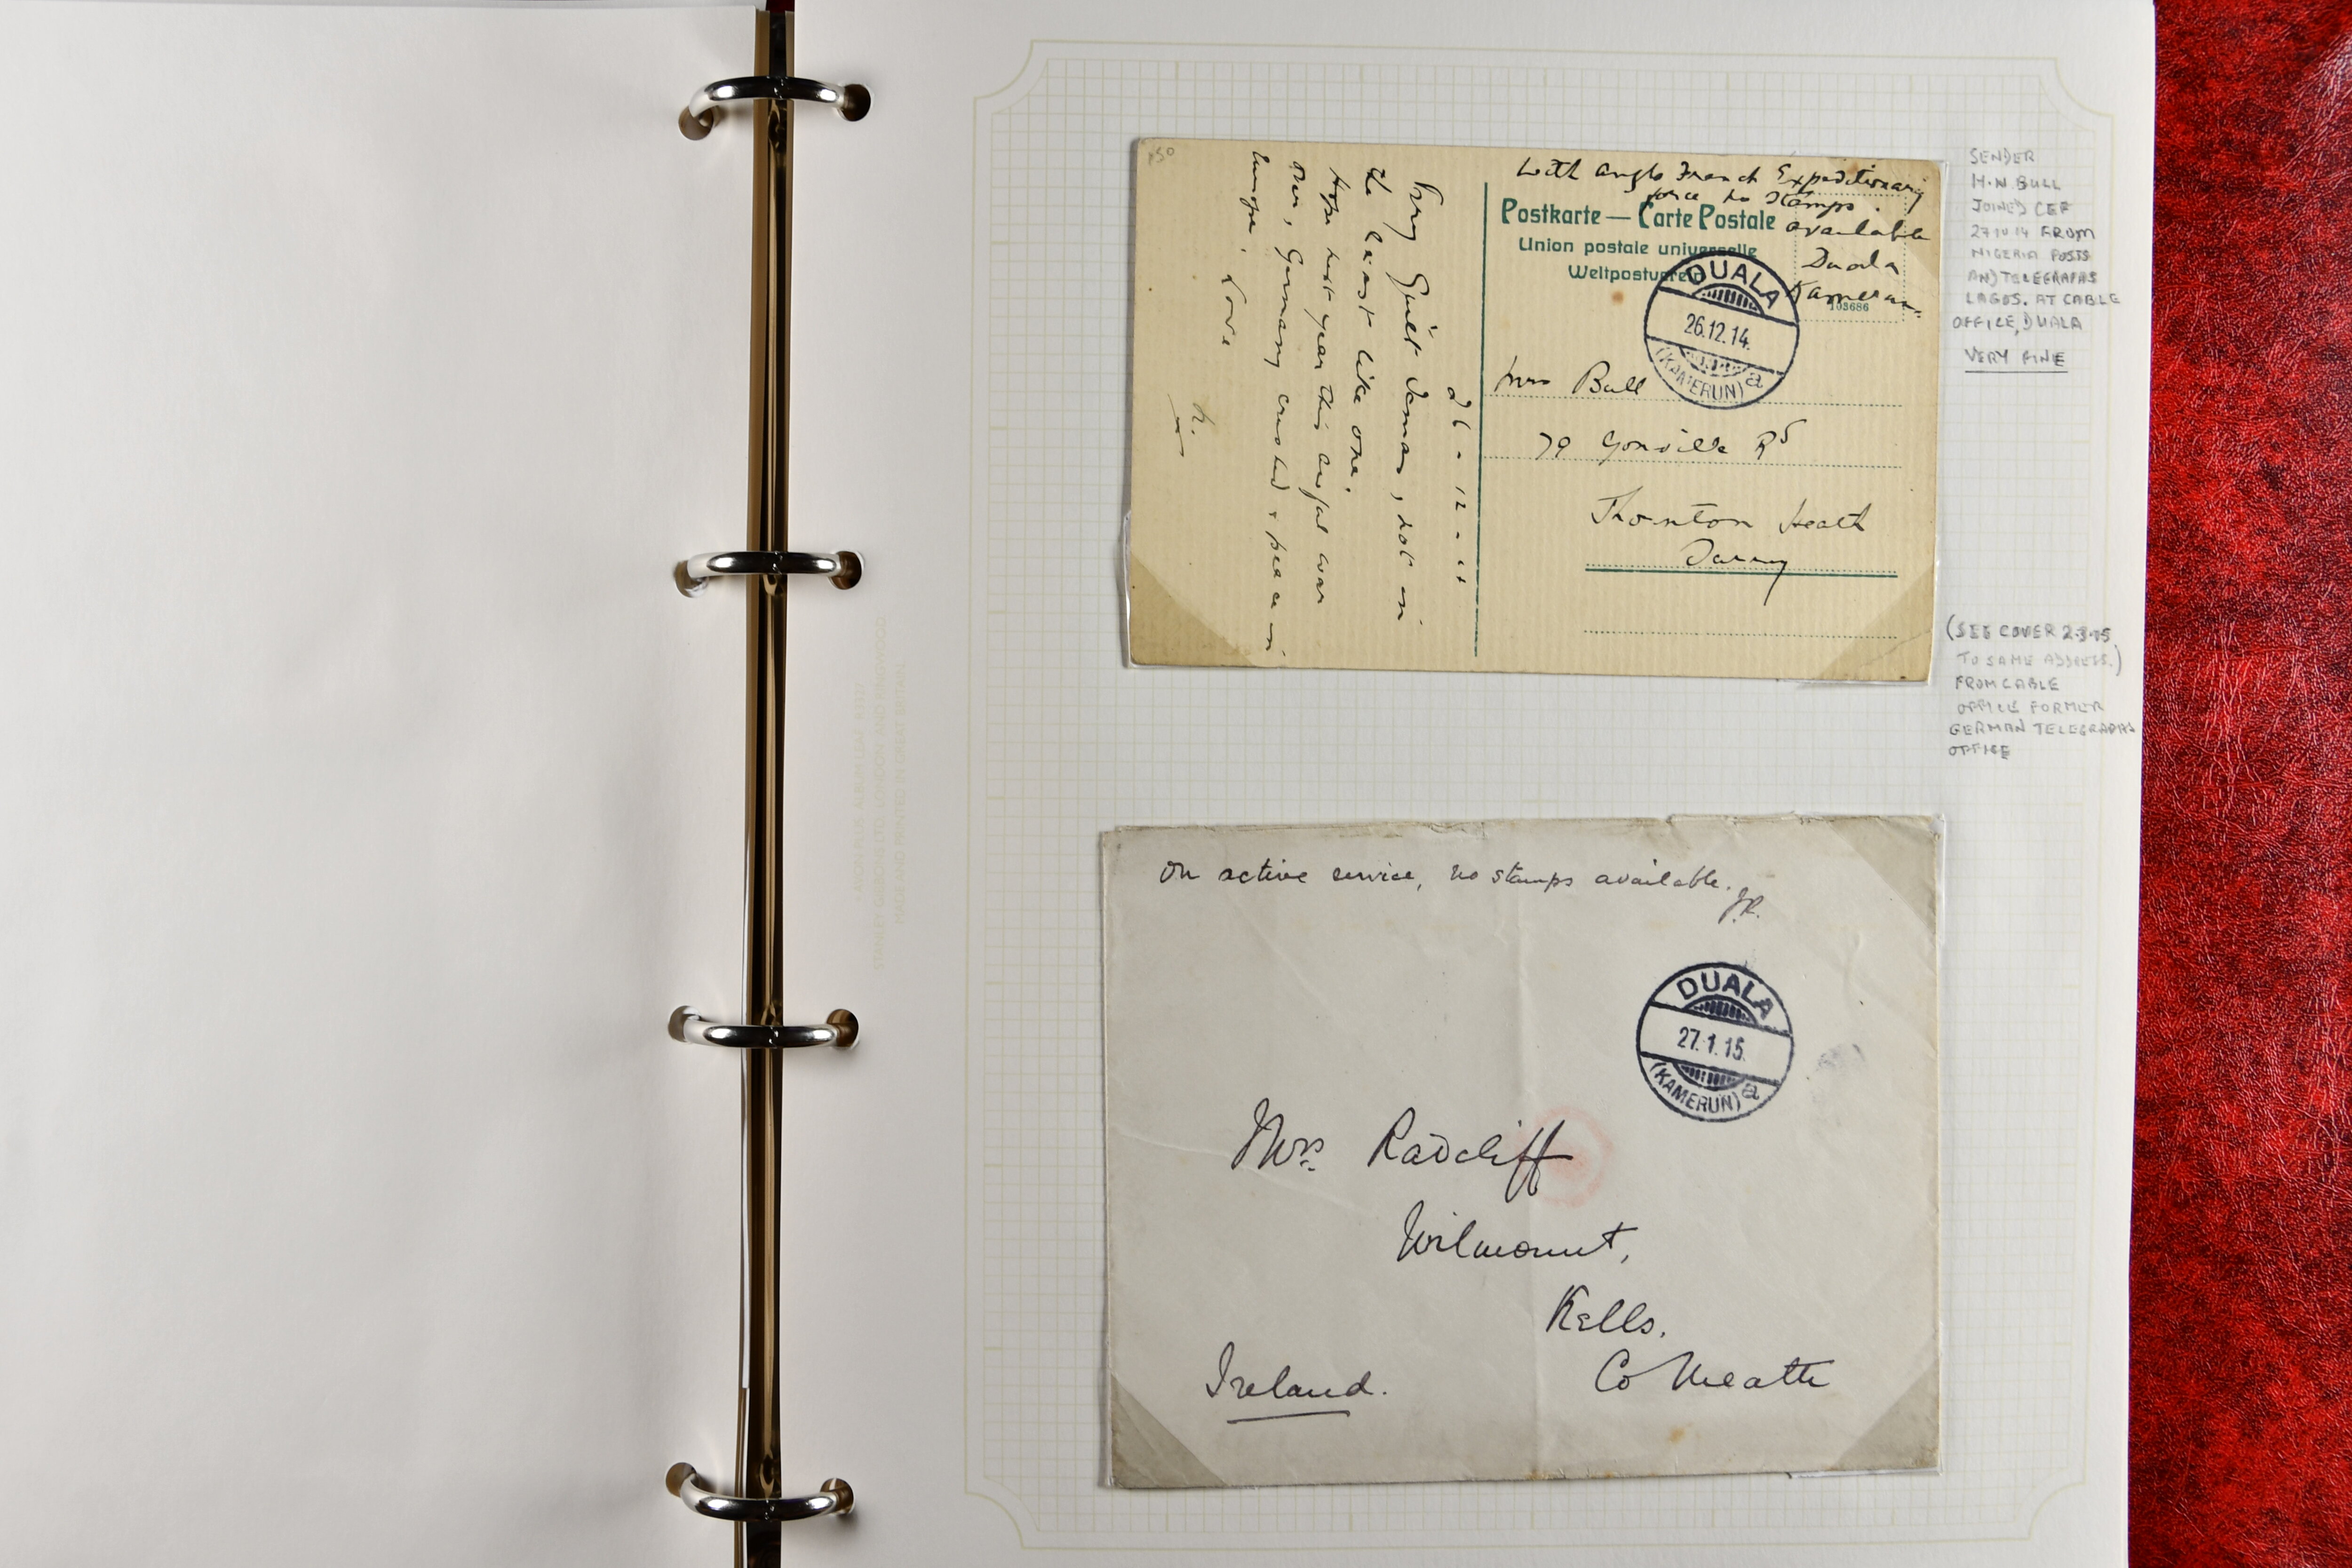 With Anglo French Expeditionary
force no stamps
available
Duala
Kamerun
Postkarte — Carte Postale
Union postale universelle
Weltpostverein
103686
DUALA
26.12.14.
(KAMERUN) a
Mrs Bull
79 Gonville Rd
Thornton Heath
Surrey
150
26 - 12 -
Very Quiet Xmas, not in
the least like one.
Hope next year this awful war
over, Germany crushed + peace in
Europe. Love
H.
SENDER
H.N. BULL
JOINED CEF
27 10 14 FROM
NIGERIA POSTS
AND TELEGRAPHS
LAGOS. AT CABLE
OFFICE, DUALA
VERY FINE
(SEE COVER 2.3.15
TO SAME ADDRESS.)
FROM CABLE
OFFICE FORMER
GERMAN TELEGRAPHS
OFFICE
STANLEY GIBBONS LTD. LONDON AND RINGWOOD
MADE AND PRINTED IN GREAT BRITAIN
On active service, no stamps available.
J.R.
DUALA
27.1.15.
(KAMERUN) a
Mrs. Radcliff
Wilmount,
Kells.
Co Meath
Ireland.